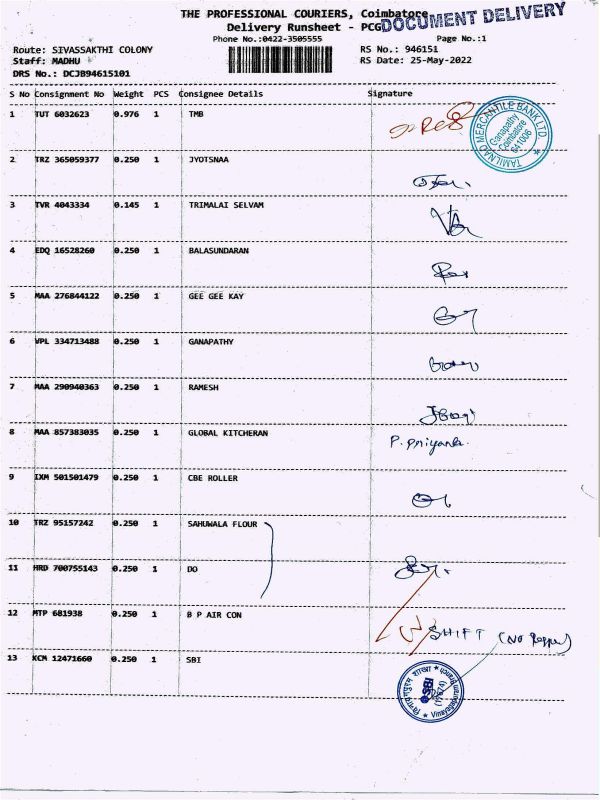 THE PROFESSIONAL COURIERS, Coimbatore
DOCUMENT DELIVERY
Delivery Runsheet - PCG
Phone No.:0422-3505555
Page No.:1
Route: SIVASSAKTHI COLONY
RS No.: 946151
Staff: MADHU
RS Date: 25-May-2022
DRS No.: DCJB94615101
S No Consignment No Weight PCS Consignee Details Signature
1 TUT 6032623 0.976 1 TMB
TAMILNAD MERCANTILE BANK LTD.
Ganapathy
Coimbatore
641006
2 TRZ 365059377 0.250 1 JYOTSNAA
3 TVR 4043334 0.145 1 TRIMALAI SELVAM
4 EDQ 16528260 0.250 1 BALASUNDARAN
5 MAA 276844122 0.250 1 GEE GEE KAY
6 VPL 334713488 0.250 1 GANAPATHY
7 MAA 290940363 0.250 1 RAMESH
8 MAA 857383035 0.250 1 GLOBAL KITCHERAN
P. Priyanka.
9 IXM 501501479 0.250 1 CBE ROLLER
10 TRZ 95157242 0.250 1 SAHUWALA FLOUR
11 HRD 700755143 0.250 1 DO
12 MTP 681938 0.250 1 B P AIR CON
SHIFT (NO
13 KCM 12471660 0.250 1 SBI
SBI